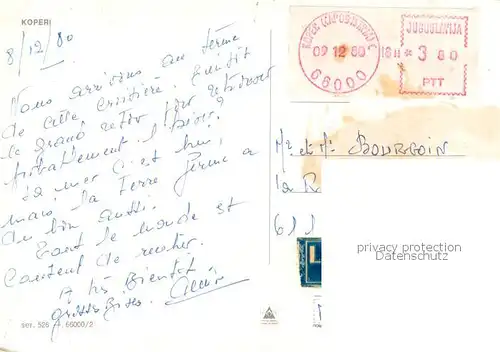 KOPER
8/12/80
Nous arrivons au terme
de cette croisière. Ensuite
le grand retour pour retrouver
probablement l'hiver?
La mer c'est bien,
mais la Terre ferme a
du bon aussi.
Tout le monde est
content de rentrer.
A très Bientôt
grosses Bises.
ser. 526 66000/2
KOPER CAPODISTRIA
09.12.80 - 18 H *
66000
JUGOSLAVIJA
3 80
PTT
Mr et Me BOURGOIN
la R
611
privacy protection
Verwendungsschutz